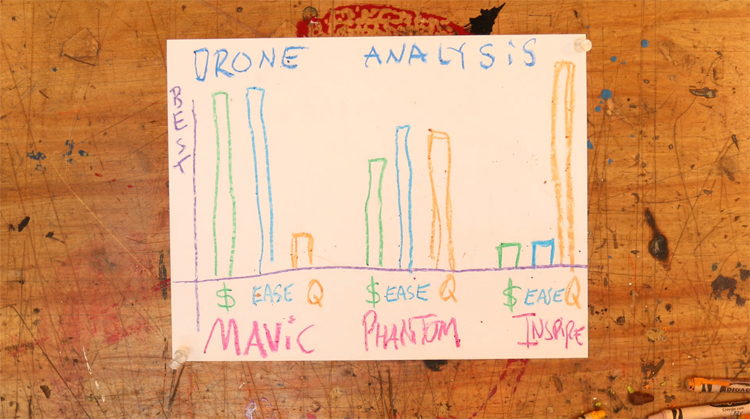 DRONE ANALYSIS
BEST
$ EASE Q $ EASE Q $ EASE Q
MAViC PHANTOM INSPIRE